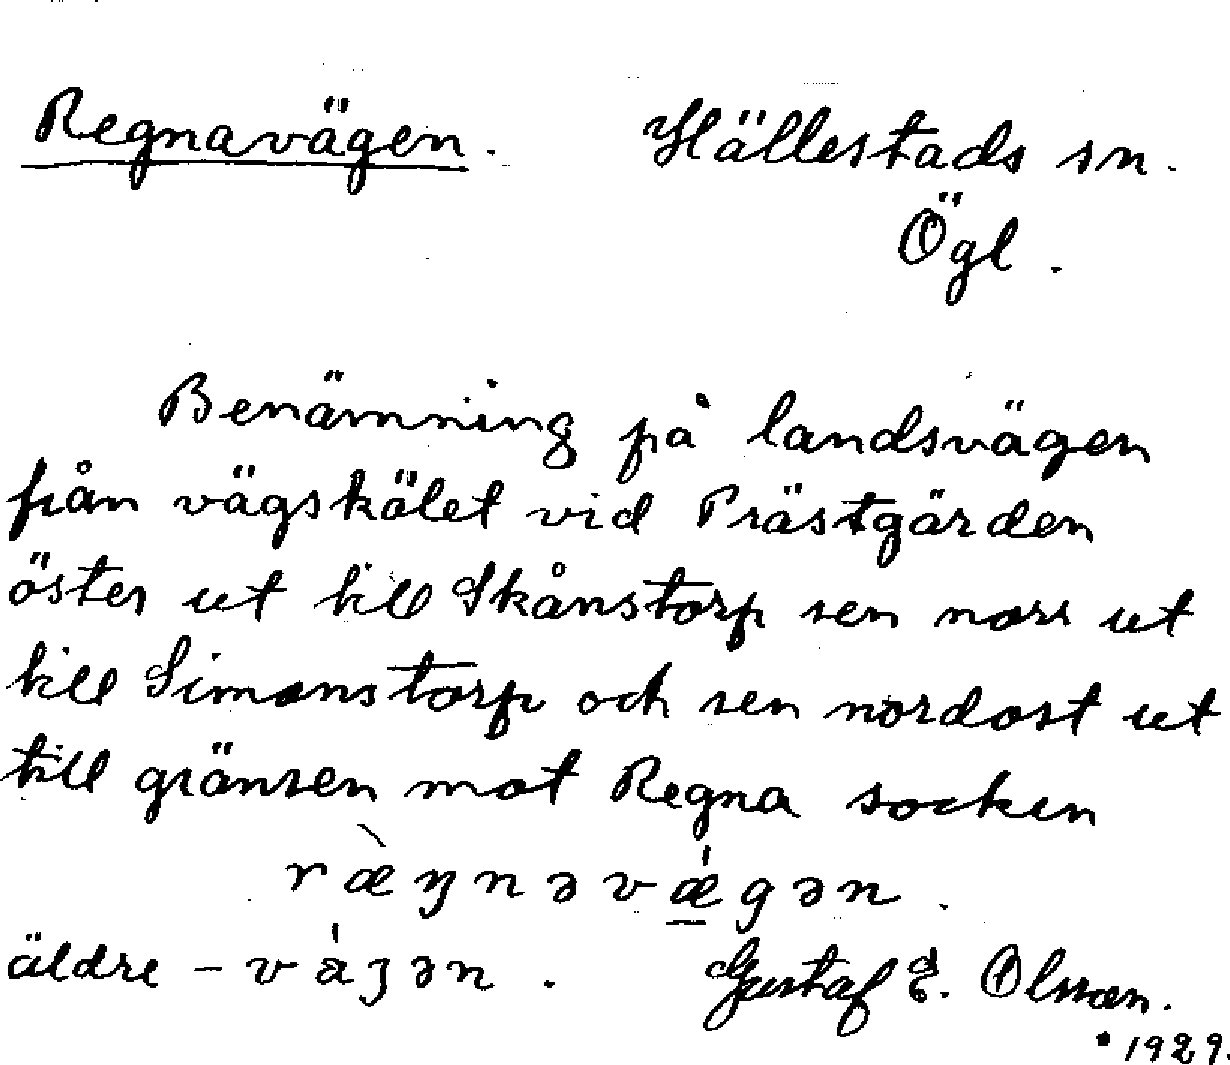 Regnavägen. Hällestads sn.
Ögl.
Benämning på landsvägen
från vägskälet vid Prästgården
öster ut till Skånstorp sen norr ut
till Simonstorp och sen nordost ut
till gränsen mot Regna socken
ræ̀ŋnəvǽgən.
äldre – váʒən. Gustaf E. Olsson.
* 1929.